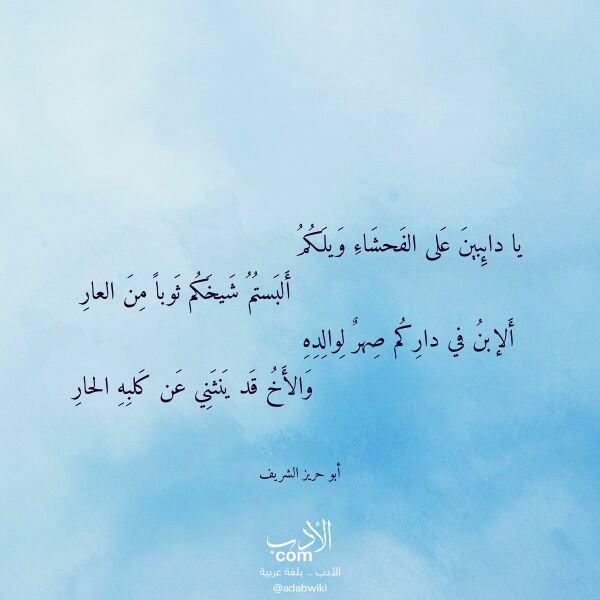 يا دائِبينَ عَلى الفَحشَاءِ وَيلَكُمُ
أَلبَستُمُ شَيخَكُم ثَوباً مِنَ العارِ
أَلإبنُ في دارِكُم صِهرٌ لِوالِدِهِ
وَالأَخُ قَد يَنثَنِي عَن كَلبِهِ الحارِ
أبو حريز الشريف
الأدب
com
الأدب .. بلغة عربية
@adabwiki